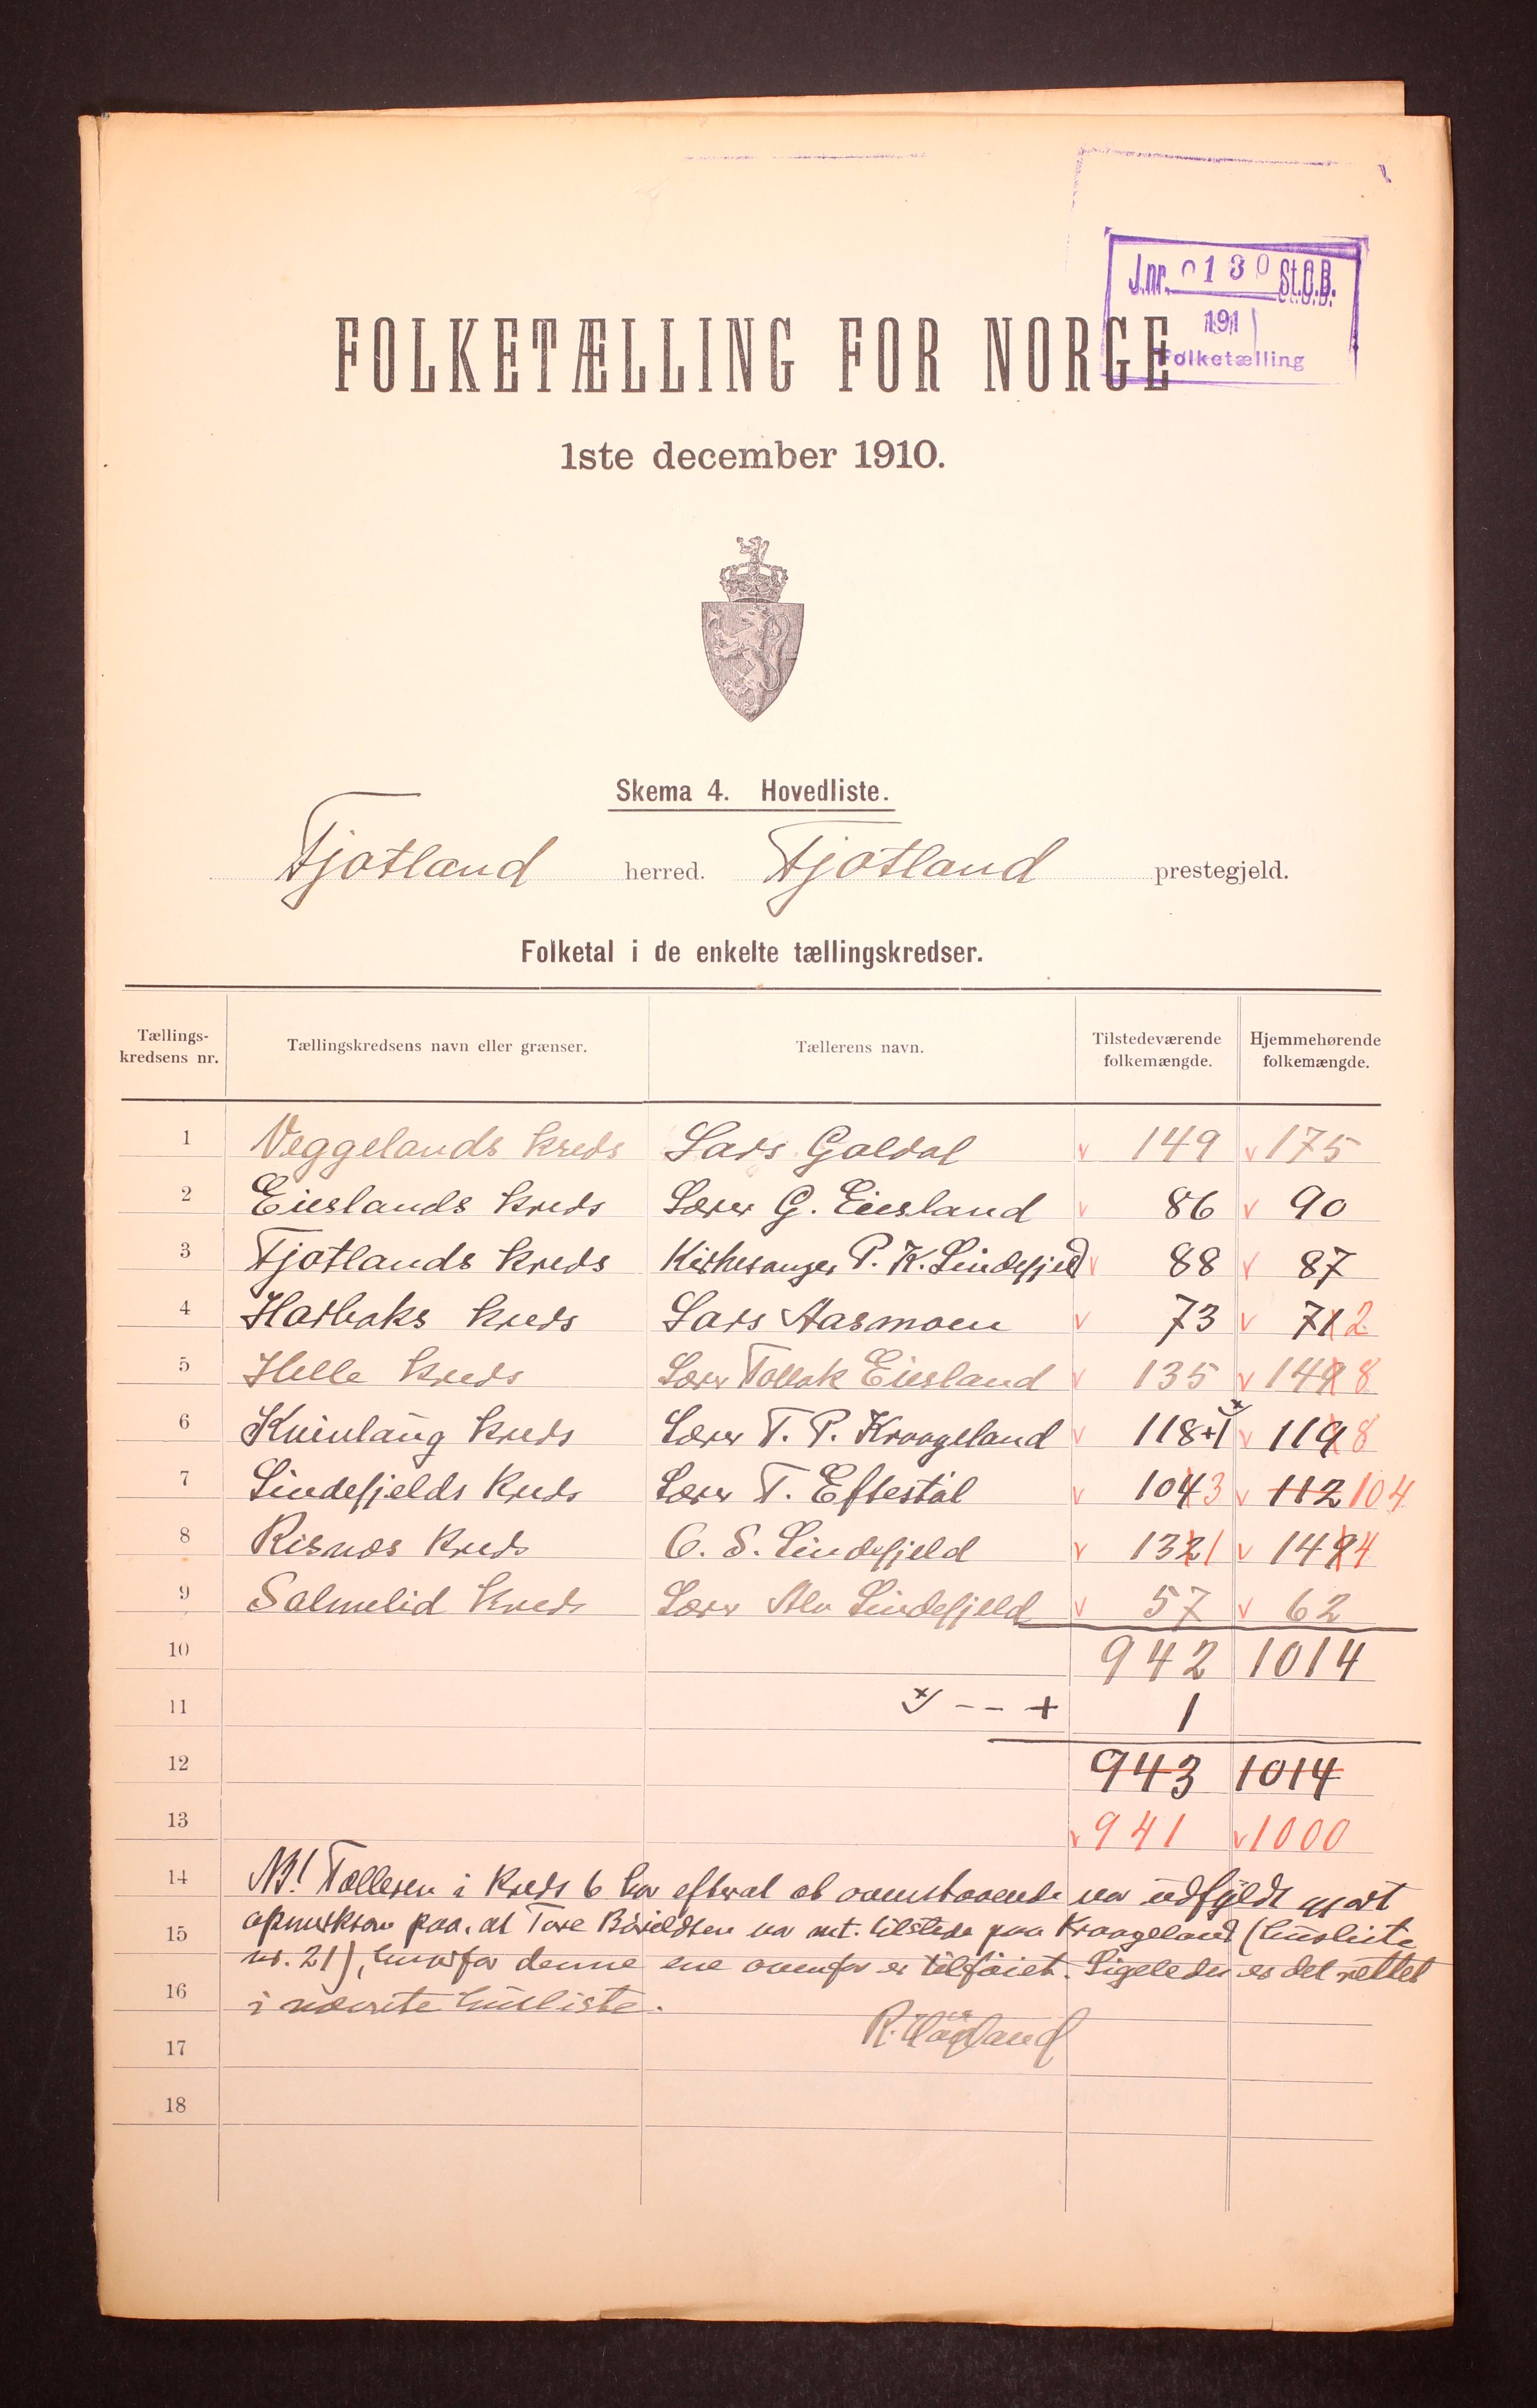 J.nr. 0130 St.O.B.
191
Folketælling
FOLKETÆLLING FOR NORGE
1ste december 1910.
Skema 4. Hovedliste.
Fjotland herred. Fjotland prestegjeld.
Folketal i de enkelte tællingskredser.
Tællings-kredsens nr. Tællingskredsens navn eller grænser. Tællerens navn. Tilstedeværende folkemængde. Hjemmehørende folkemængde.
1 Veggelands kreds Lars Galdal v 149 v 175
2 Eieslands kreds Lærer G. Eiesland v 86 v 90
3 Fjotlands kreds Kirkesanger P. K. Lindefjeld v 88 v 87
4 Harbaks kreds Lars Aasmoen v 73 v 71 2
5 Helle kreds Lærer Tollak Eiesland v 135 v 149 8
6 Kvinlaug kreds Lærer T. P. Kraageland v 118+1 x) v 119 8
7 Lindefjelds kreds Lærer T. Eftestøl v 104 3 v 112 104
8 Risnæs kreds O. S. Lindefjeld v 132 1 v 149 4
9 Salmelid kreds Lærer Alv Lindefjeld v 57 v 62
10 942 1014
11 x) - - + 1
12 943 1014
13 v 941 v 1000
14 NB! Tælleren i kreds 6 har efterat ovenstaaende var udfyldt gjort
15 opmerksom paa, at Tore Bårdldsen var mt. tilstede paa Kraageland (husliste
nr. 21), hvorfor denne ene ovenfor er tilføiet. Ligeledes er det rettet
16 i nævnte husliste.
17 R.
18